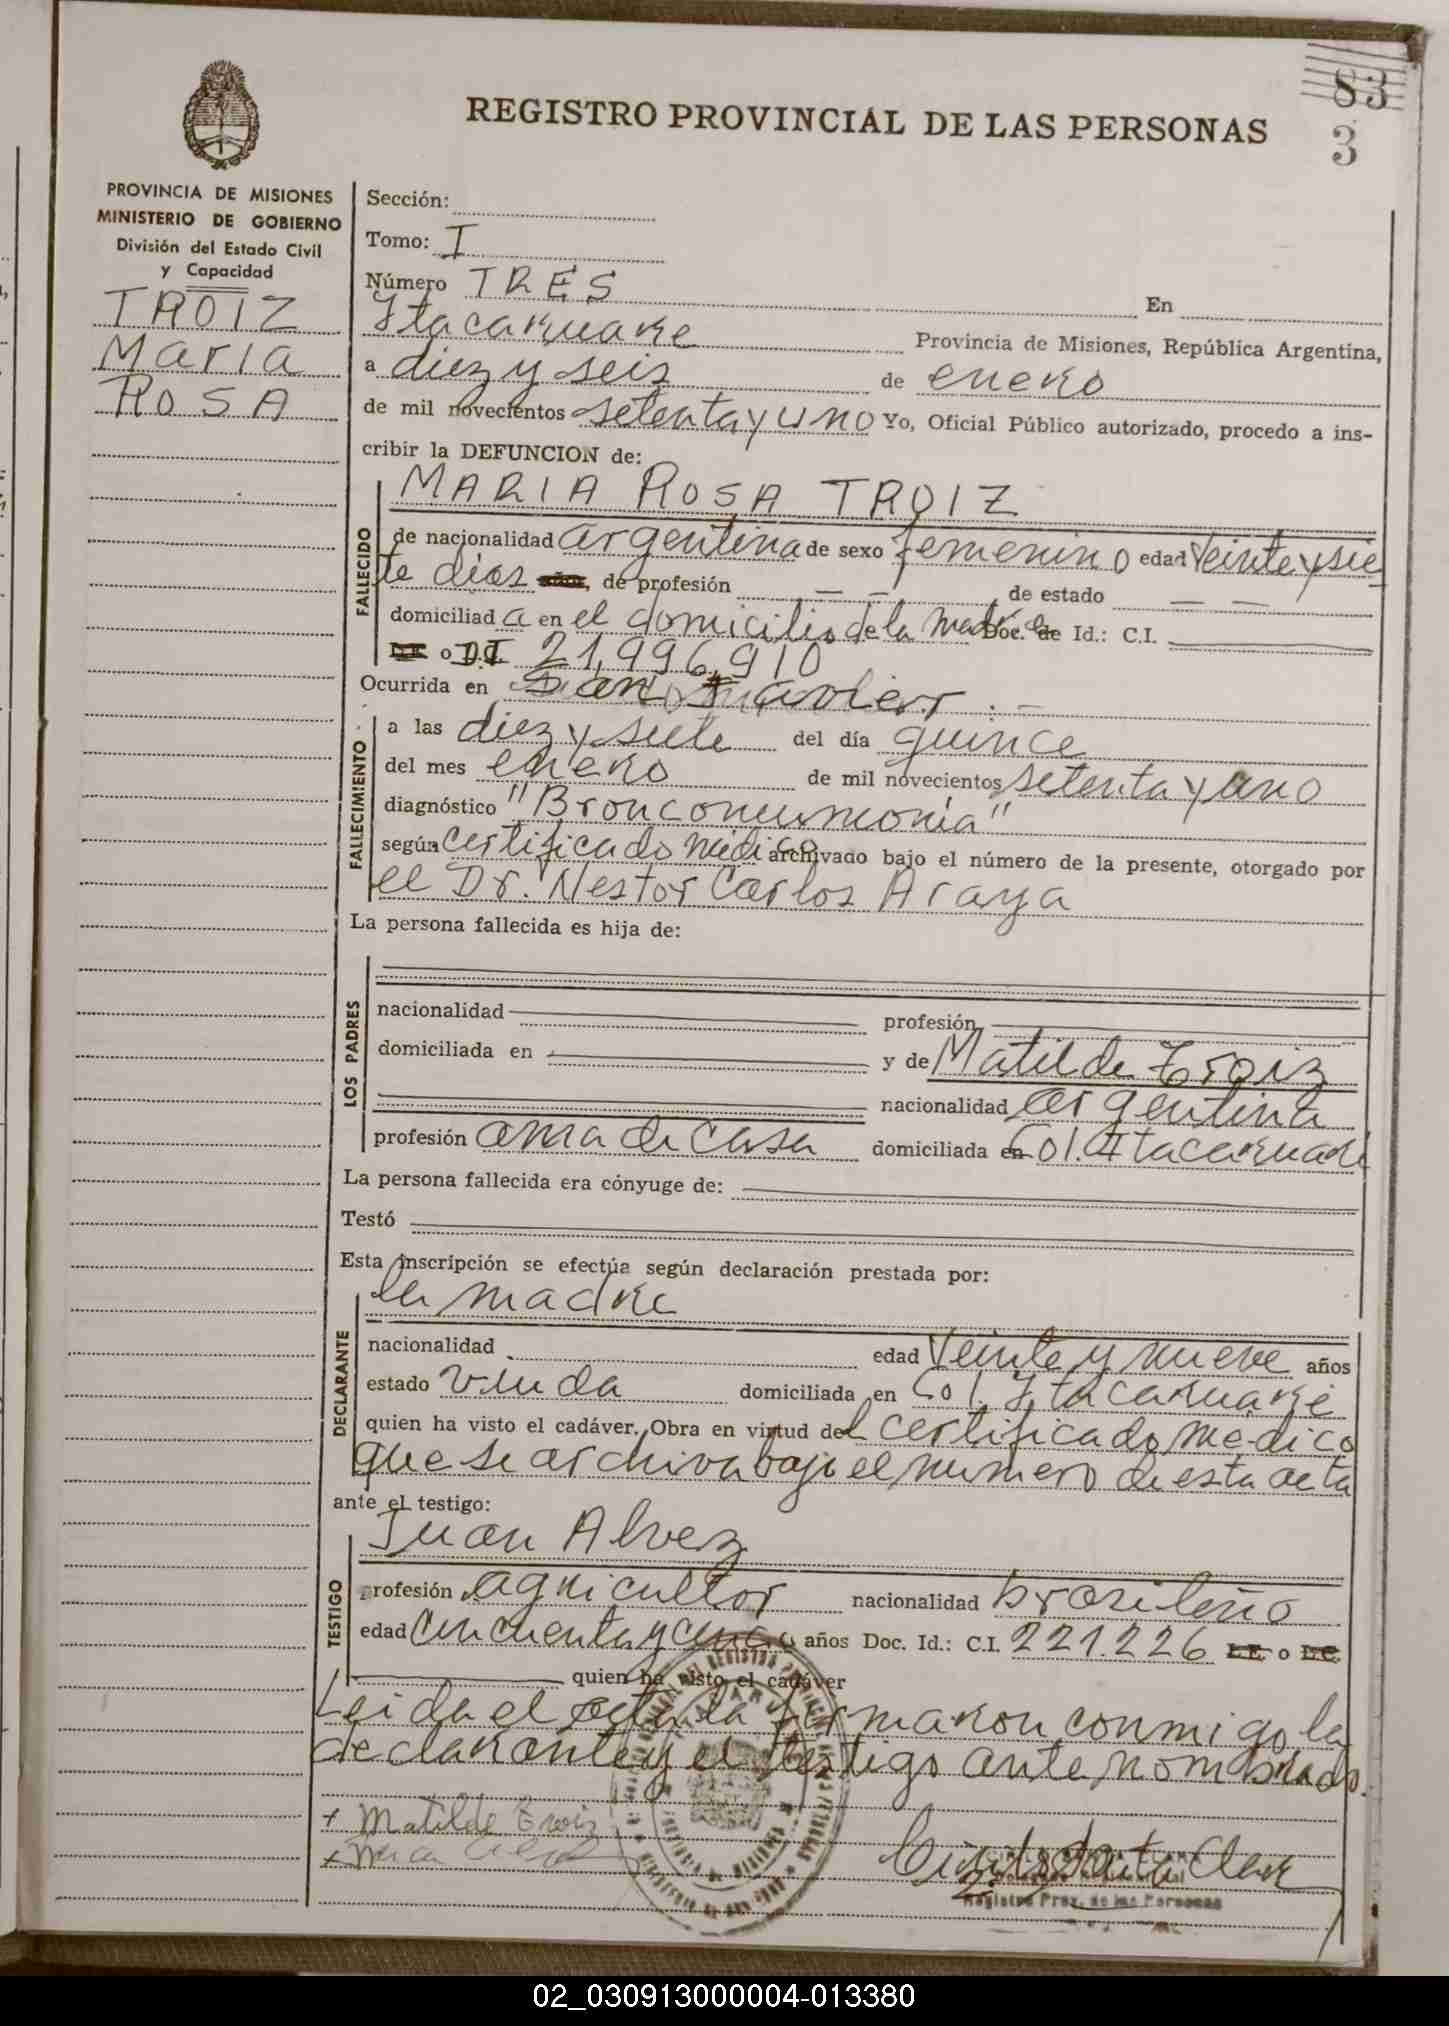 83
REGISTRO PROVINCIAL DE LAS PERSONAS
3
PROVINCIA DE MISIONES
MINISTERIO DE GOBIERNO
División del Estado Civil
y Capacidad
TROIZ
Maria
ROSA
Sección:
Tomo: I
Número TRES En
Itacaruare Provincia de Misiones, República Argentina,
a diez y seis de enero
de mil novecientos setenta y uno Yo, Oficial Público autorizado, procedo a ins-
cribir la DEFUNCION de:
MARIA ROSA TROIZ
FALLECIDO
de nacionalidad argentina de sexo femenino edad veinte y sie
te dias, de profesión — — de estado — —
domiciliad a en el domicilio de la madre Doc. de Id.: C.I.
o D.I. 21,996,910
Ocurrida en San Javier
FALLECIMIENTO
a las diez y siete del día quince
del mes enero de mil novecientos setenta y uno
diagnóstico "Bronconeumonia"
según certificado médico archivado bajo el número de la presente, otorgado por
el Dr. Nestor Carlos Araya
La persona fallecida es hija de:
LOS PADRES
nacionalidad profesión
domiciliada en y de Matilde Troiz
nacionalidad argentina
profesión ama de casa domiciliada en Col. Itacaruare
La persona fallecida era cónyuge de:
Testó
Esta inscripción se efectúa según declaración prestada por:
la madre
DECLARANTE
nacionalidad edad veinte y nueve años
estado viuda domiciliada en Col. Itacaruare
quien ha visto el cadáver. Obra en virtud del certificado medico
que se archiva bajo el numero de esta acta
ante el testigo:
Juan Alvez
TESTIGO
profesión agricultor nacionalidad brasileño
edad cincuenta y años Doc. Id.: C.I. 221.226 L.E. o L.C.
quien ha visto el cadáver
Leida el acta la firmaron conmigo la
declarante y el testigo ante nombrado.
+ Matilde Troiz
Registro Prov. de las Personas
02_030913000004-013380